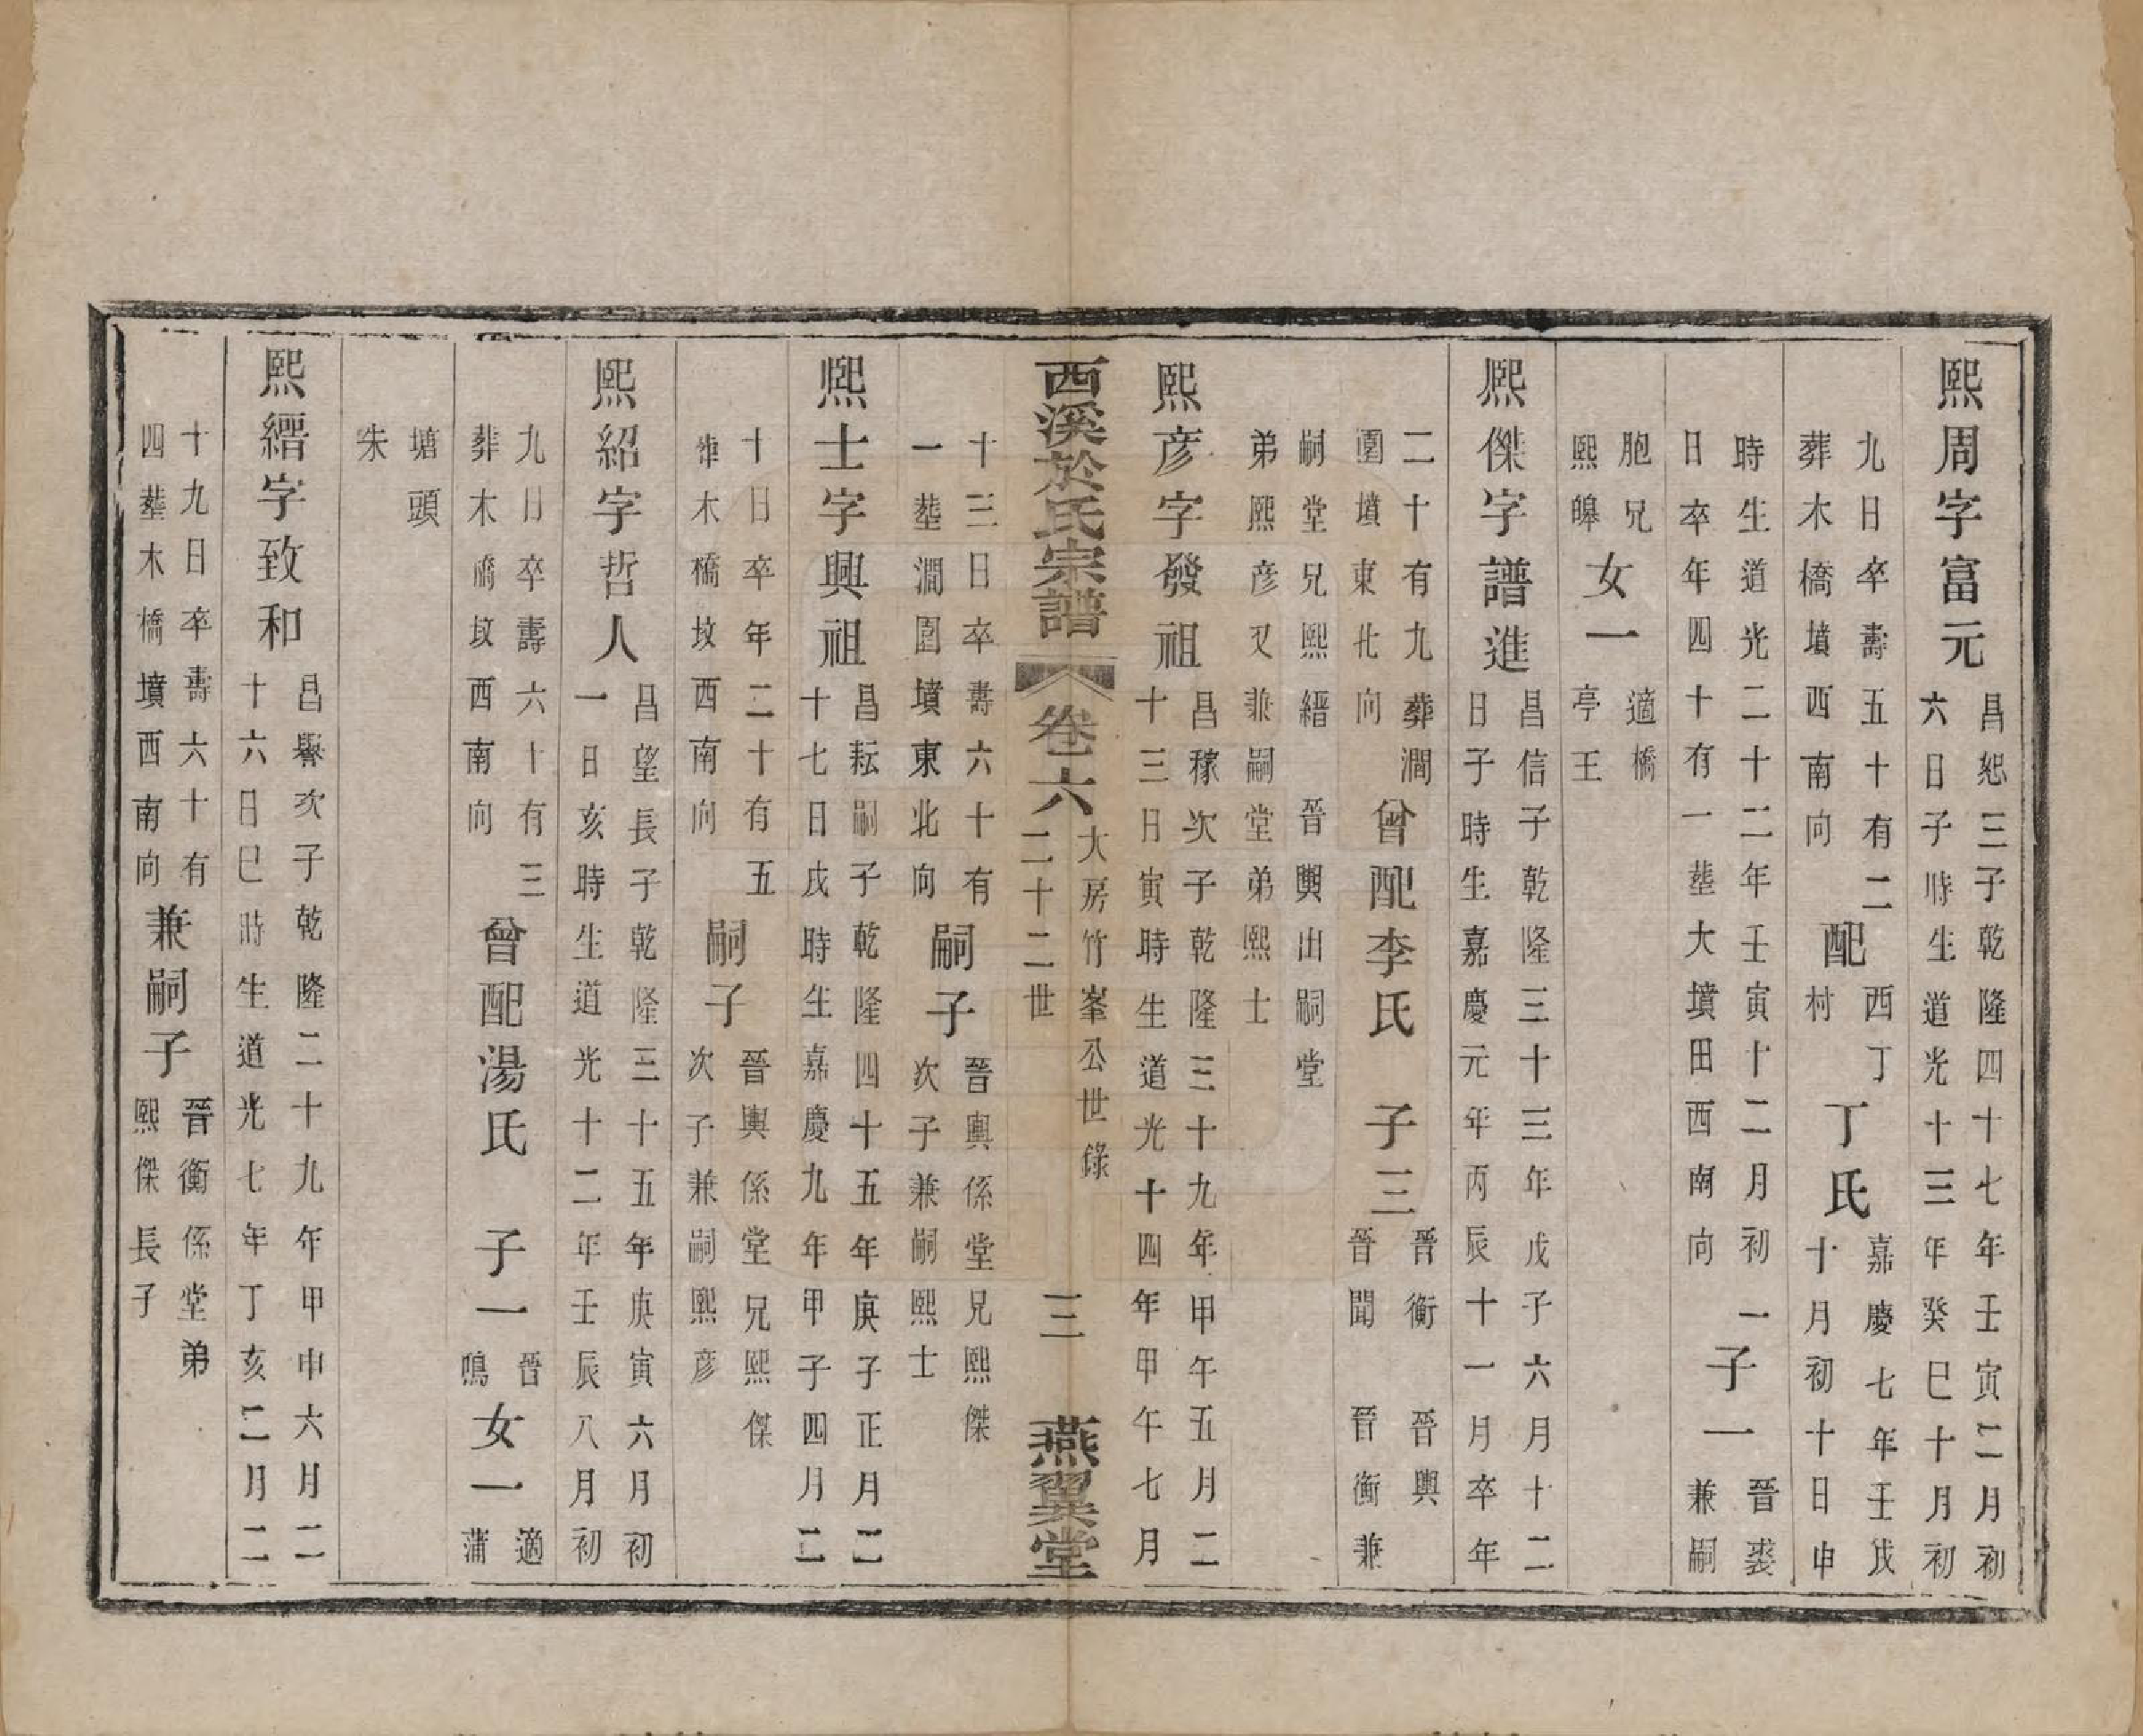 熙周字富元
昌恕三子乾隆四十七年壬寅二月初
六日子時生道光十三年癸巳十月初
九日卒壽五十有二
葬木橋墳西南向
配
西丁
村
丁氏
嘉慶七年壬戌
十月初十日申
時生道光二十二年壬寅十二月初一
日卒年四十有一塟大墳田西南向
子一
晉裘
兼嗣
胞兄
熙皞
女一
適橋
亭王
熙傑字譜進
昌信子乾隆三十三年戊子六月十二
日子時生嘉慶元年丙辰十一月卒年
二十有九葬澗
圍墳東北向
曾配李氏
子三
晉衡
晉聞
晉輿
晉衡兼
嗣堂兄熙縉
弟熙彦又兼嗣堂弟熙士
晉輿出嗣堂
熙彦字發祖
昌稼次子乾隆三十九年甲午五月二
十三日寅時生道光十四年甲午七月
西溪於氏宗譜
卷六
大房竹峯公世錄
二十二世
三
燕翼堂
十三日卒壽六十有
一塟澗圍墳東北向
嗣子
晉輿係堂兄熙傑
次子兼嗣熙士
熙士字興祖
昌耘嗣子乾隆四十五年庚子正月二
十七日戌時生嘉慶九年甲子四月二
十日卒年二十有五
葬木橋坟西南向
嗣子
晉輿係堂兄熙傑
次子兼嗣熙彦
熙紹字哲人
昌望長子乾隆三十五年庚寅六月初
一日亥時生道光十二年壬辰八月初
九日卒壽六十有三
葬木橋坟西南向
曾配湯氏
子一
晉
鳴
女一
適
蒲
塘頭
朱
熙縉字致和
昌譽次子乾隆二十九年甲申六月二
十六日巳時生道光七年丁亥二月二
十九日卒壽六十有
四塟木橋墳西南向
兼嗣子
晉衡係堂弟
熙傑長子